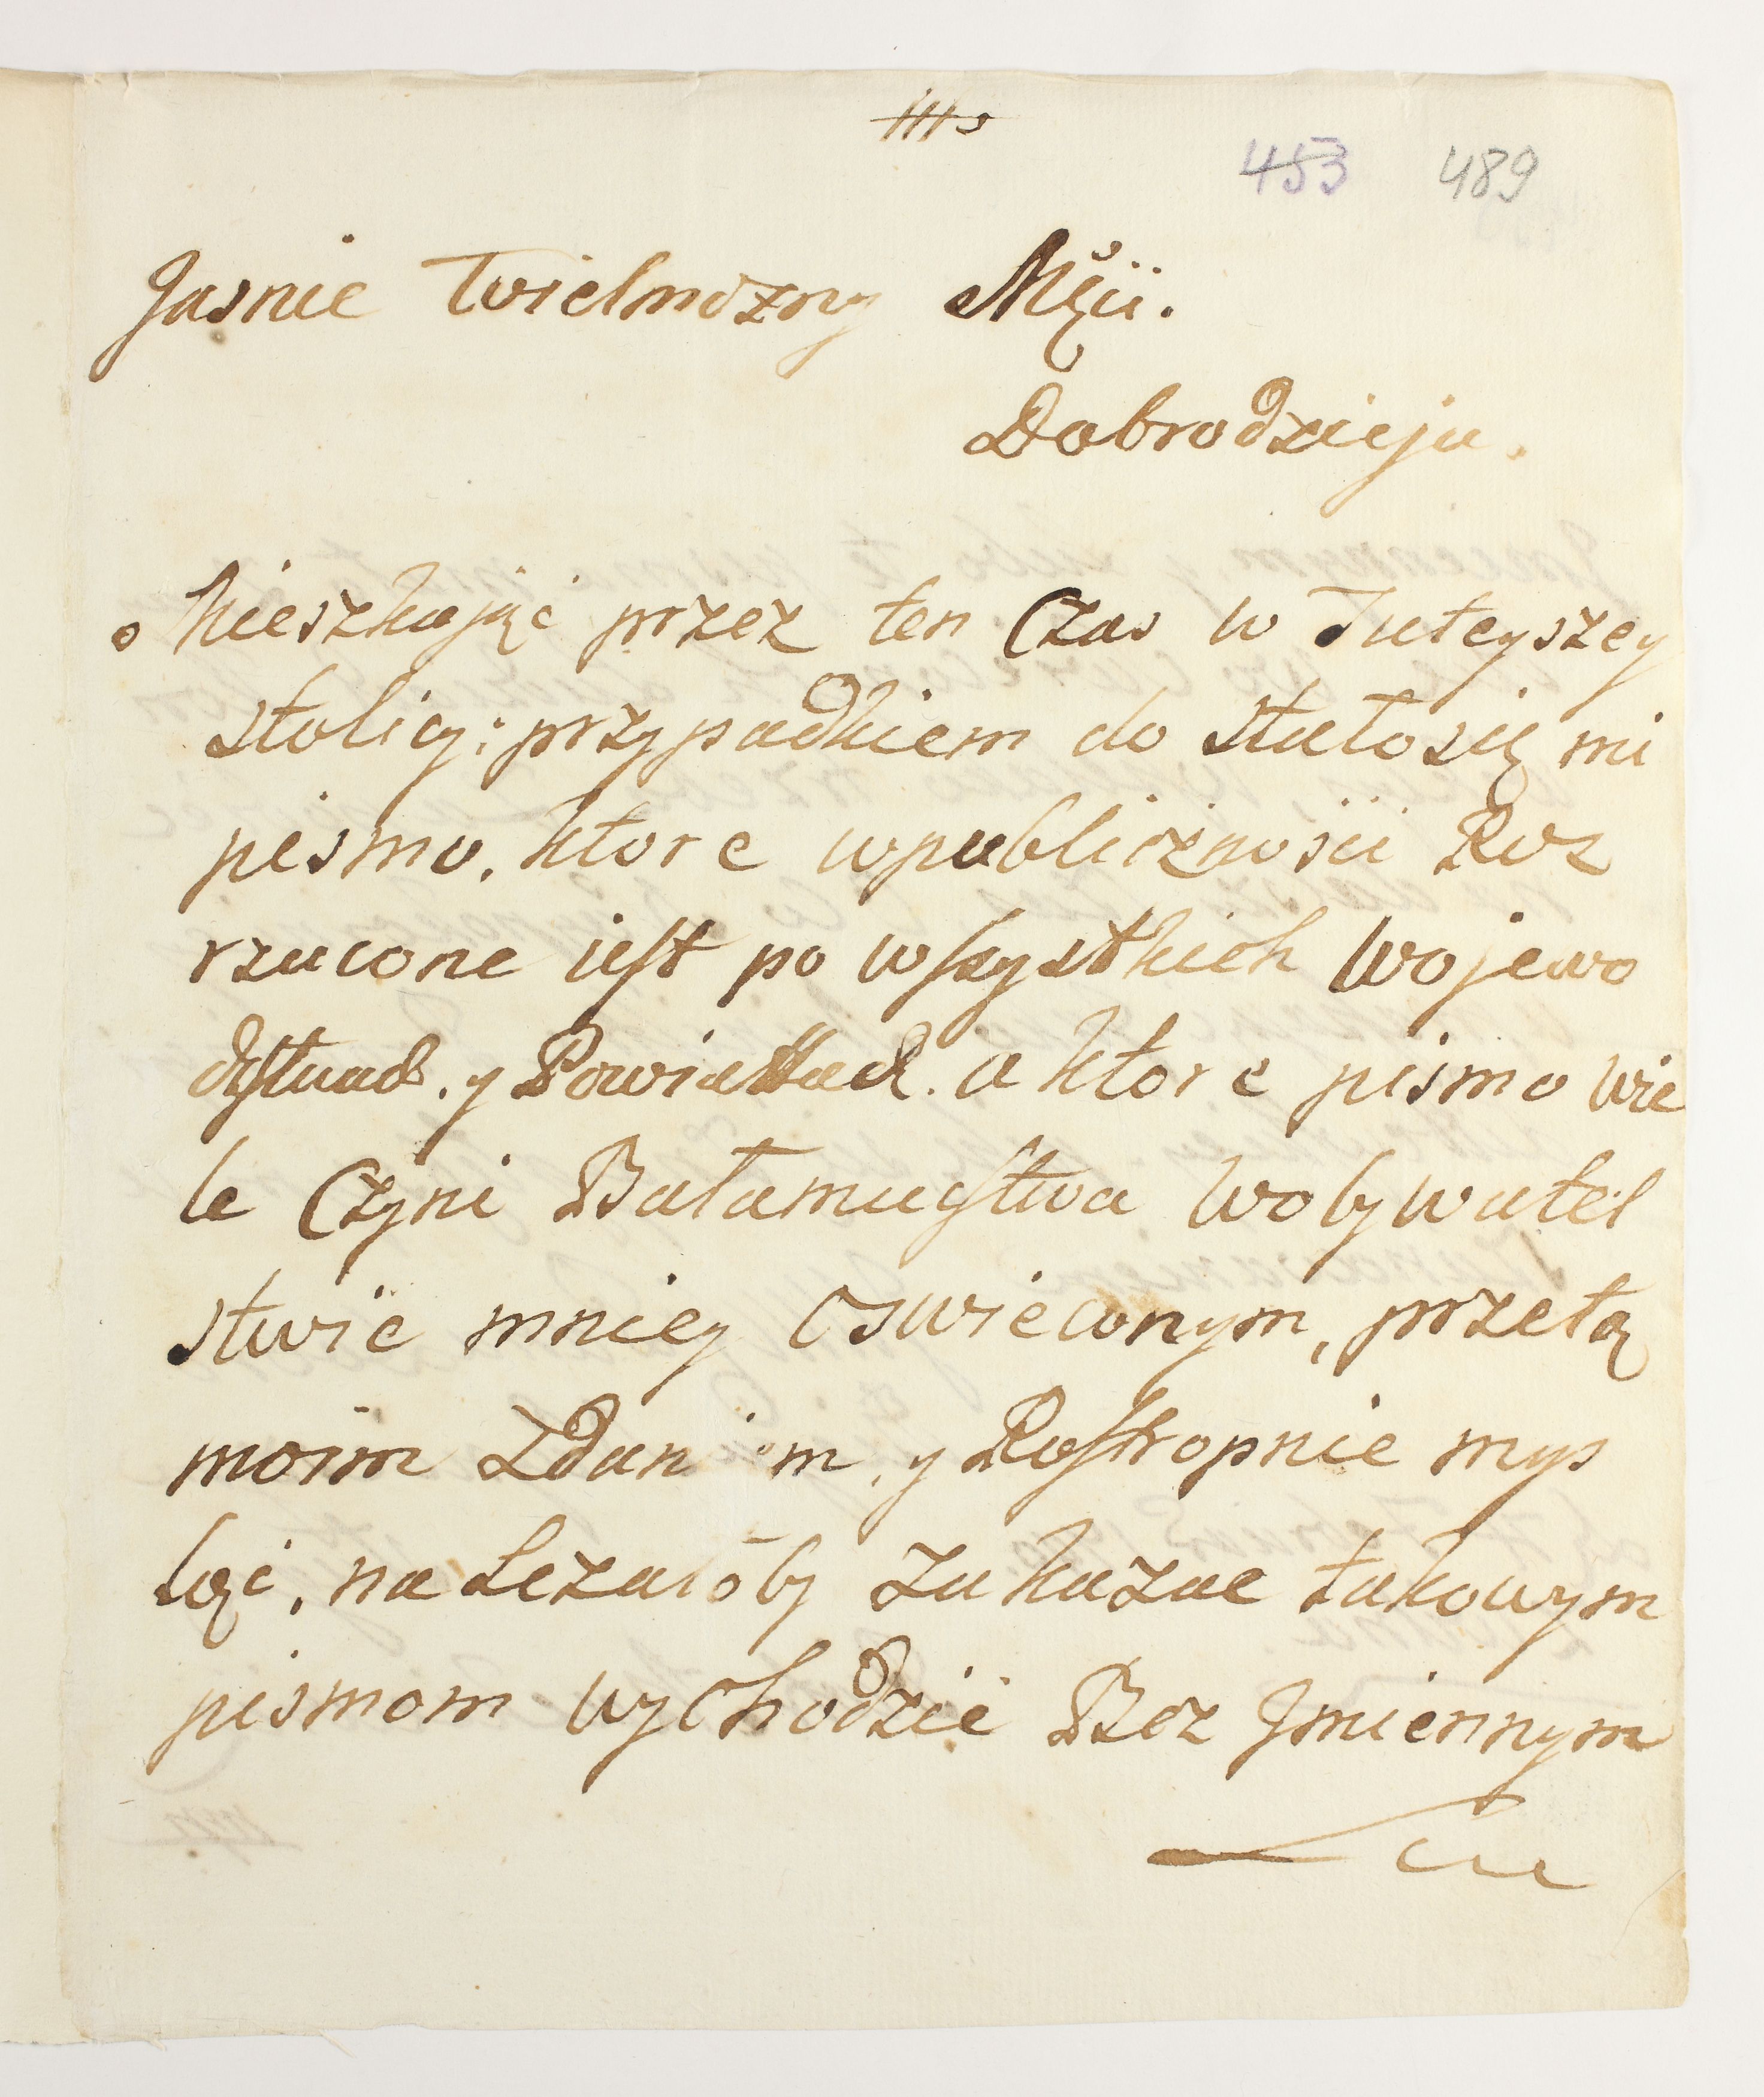 453 489
Jasnie Wielmozny Mści.
Dobrodzieju.
Mieszkaiąc przez ten Czas w Tuteyszey
stolicy; przypadkiem do stałosię mi
pismo, ktore wpublicznosci Roz
rzucone iest po wszystkich Wojewo
dstwach, y Powiattach. a ktore pismo wie
le Czyni Bałamuctwa Wobywatel
stwie mniey Oswieconym, przetą
moim Zdaniem, y Rostropnie mys
ląc, na Lezałoby zakazac takowym
pismom wychodzić Bez Jmiennym